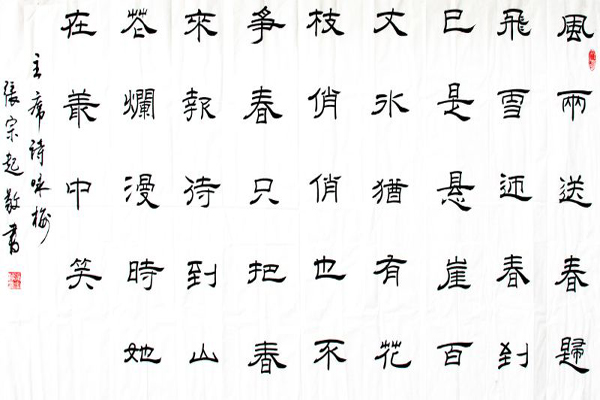 風雨送春歸
飛雪迎春到
已是悬崖百
丈冰猶有花
枝俏俏也不
爭春只把春
來報待到山
花爛漫時她
在叢中笑
主席詩咏梅
張宗起敬書